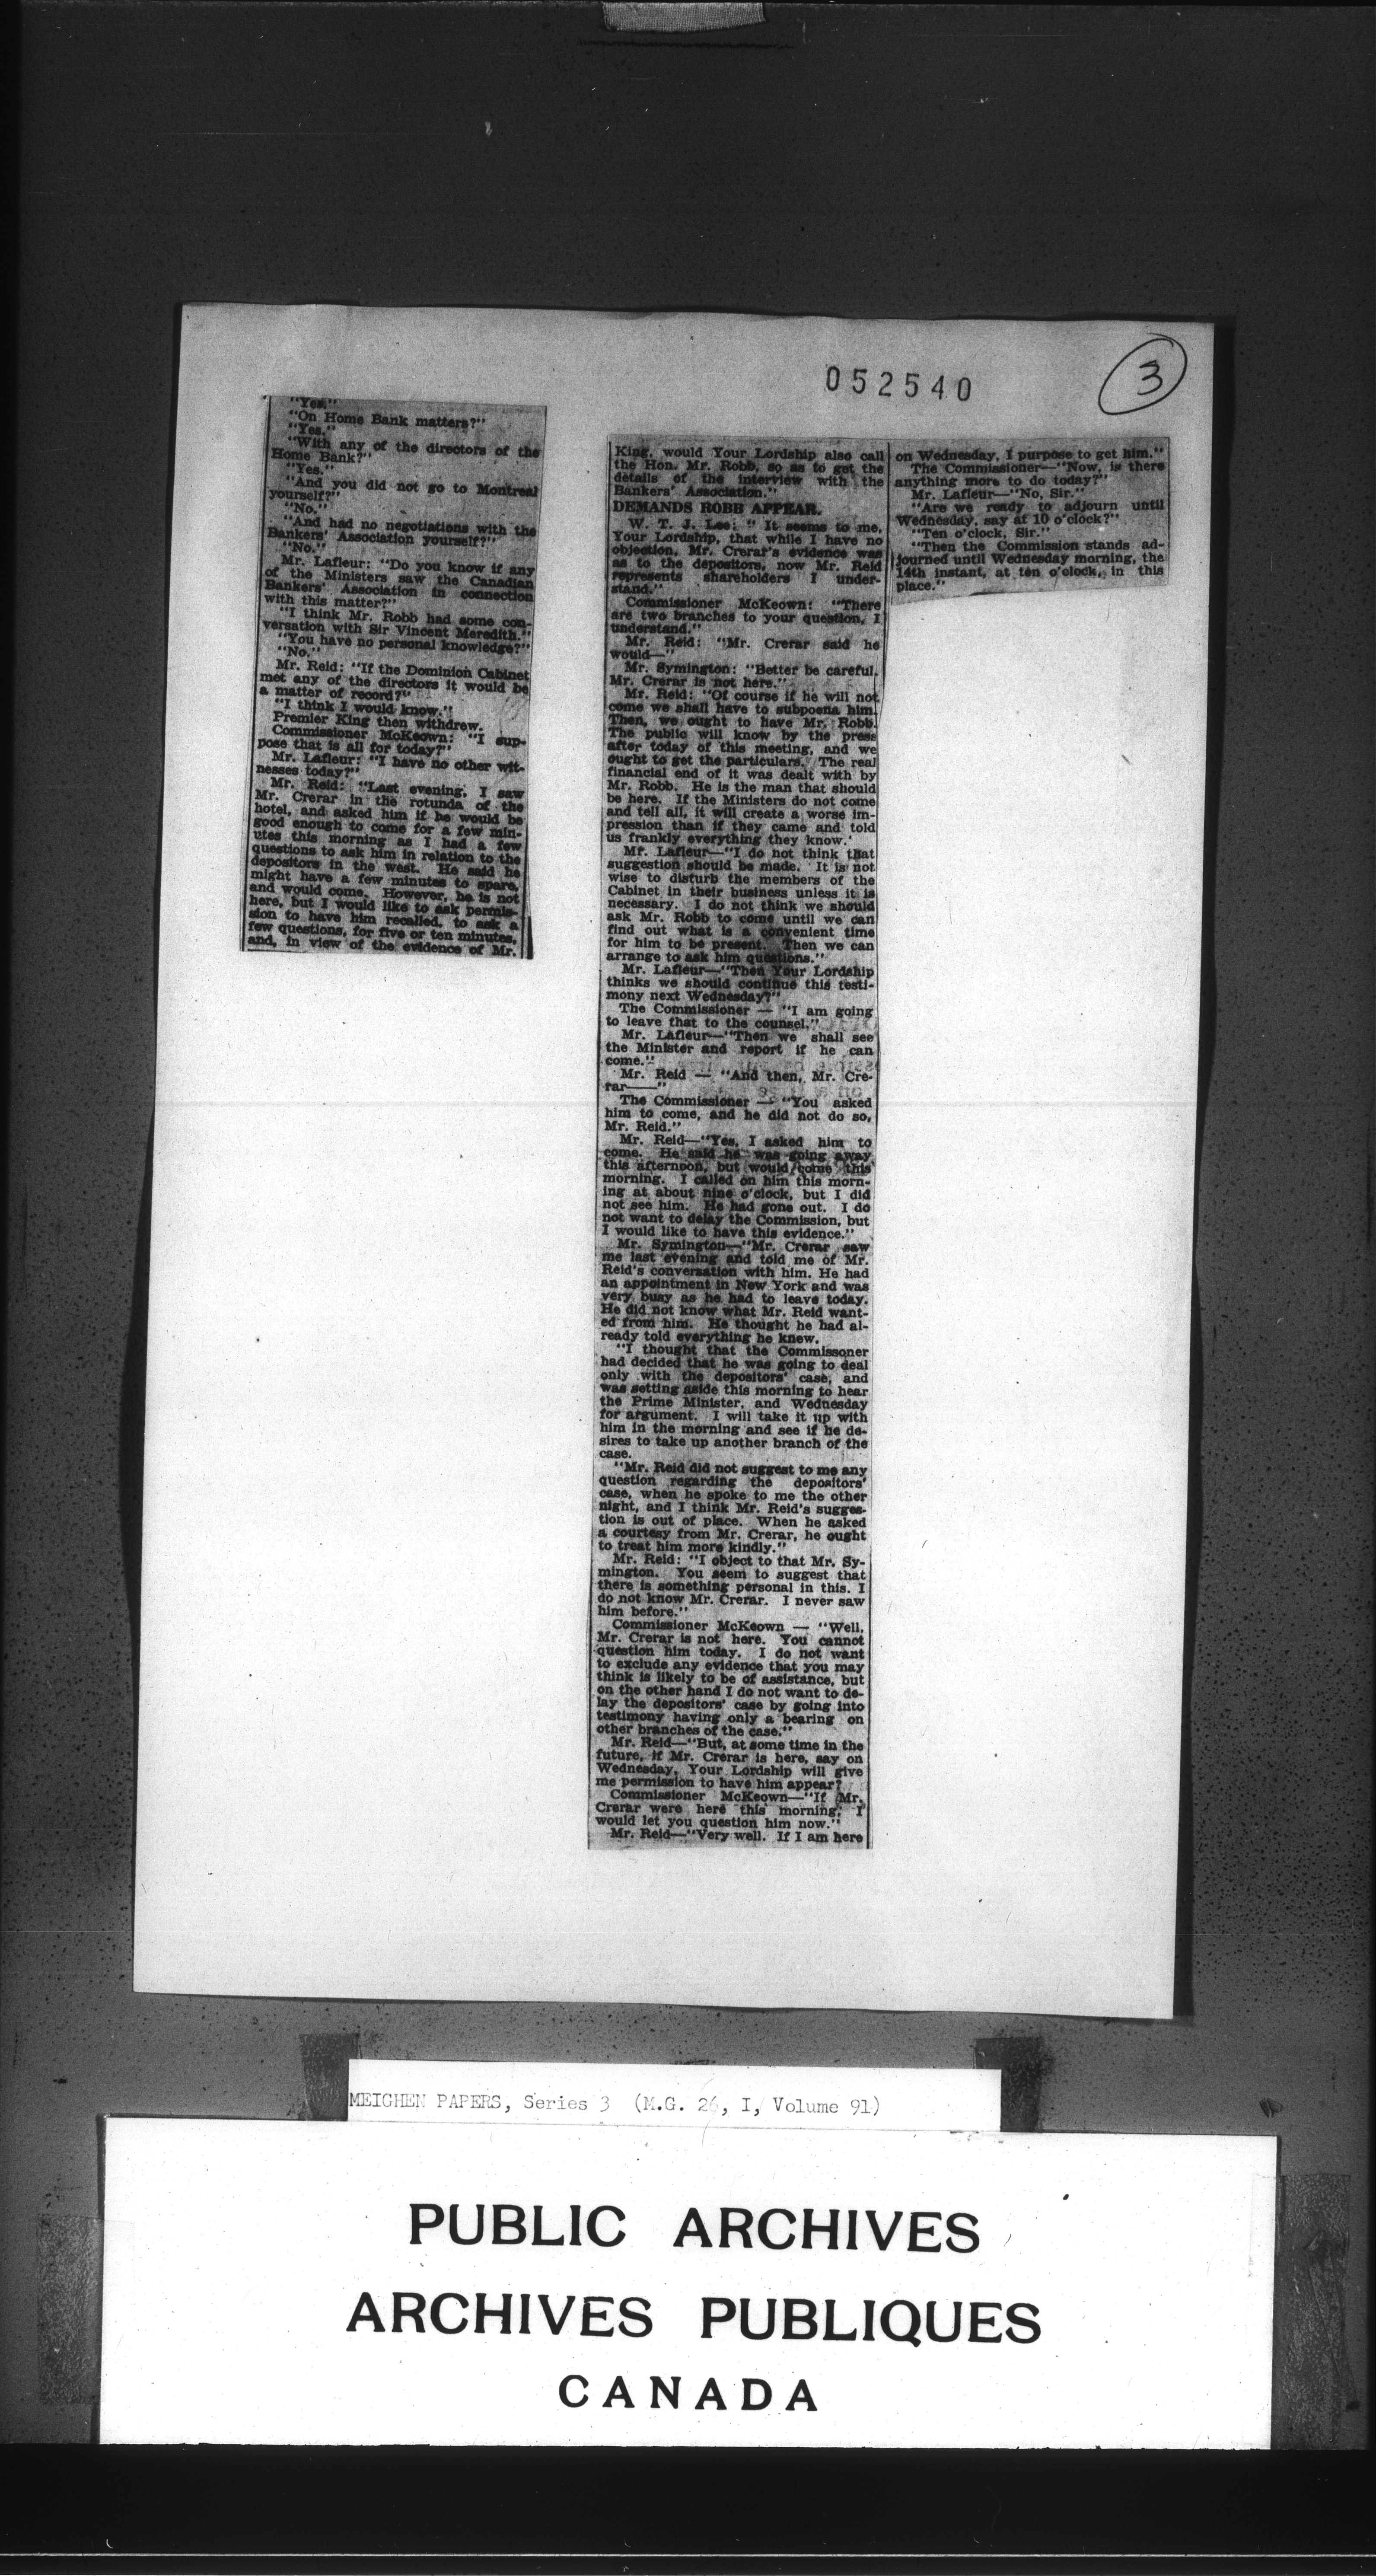 052540
3
"Yes."
"On Home Bank matters?"
"Yes."
"With any of the directors of the
Home Bank?"
"Yes."
"And you did not go to Montreal
yourself?"
"No."
"And had no negotiations with the
Bankers' Association yourself?"
"No."
Mr. Lafleur: "Do you know if any
of the Ministers saw the Canadian
Bankers' Association in connection
with this matter?"
"I think Mr. Robb had some con-
versation with Sir Vincent Meredith."
"You have no personal knowledge?"
"No."
Mr. Reid: "If the Dominion Cabinet
met any of the directors it would be
a matter of record?"
"I think I would know."
Premier King then withdrew.
Commissioner McKeown: "I sup-
pose that is all for today?"
Mr. Lafleur: "I have no other wit-
nesses today?"
Mr. Reid: "Last evening, I saw
Mr. Crerar in the rotunda of the
hotel, and asked him if he would be
good enough to come for a few min-
utes this morning as I had a few
questions to ask him in relation to the
depositors in the west. He said he
might have a few minutes to spare,
and would come. However, he is not
here, but I would like to ask permis-
sion to have him recalled, to ask a
few questions, for five or ten minutes,
and, in view of the evidence of Mr.
King, would Your Lordship also call
the Hon. Mr. Robb, so as to get the
details of the interview with the
Bankers' Association."
DEMANDS ROBB APPEAR.
W. T. J. Lee: " It seems to me,
Your Lordship, that while I have no
objection, Mr. Crerar's evidence was
as to the depositors, now Mr. Reid
represents shareholders I under-
stand."
Commissioner McKeown: "There
are two branches to your question, I
understand."
Mr. Reid: "Mr. Crerar said he
would—"
Mr. Symington: "Better be careful.
Mr. Crerar is not here."
Mr. Reid: "Of course if he will not
come we shall have to subpoena him.
Then, we ought to have Mr. Robb.
The public will know by the press
after today of this meeting, and we
ought to get the particulars. The real
financial end of it was dealt with by
Mr. Robb. He is the man that should
be here. If the Ministers do not come
and tell all, it will create a worse im-
pression than if they came and told
us frankly everything they know.'
Mr. Lafleur—"I do not think that
suggestion should be made. It is not
wise to disturb the members of the
Cabinet in their business unless it is
necessary. I do not think we should
ask Mr. Robb to come until we can
find out what is a convenient time
for him to be present. Then we can
arrange to ask him questions."
Mr. Lafleur—"Then Your Lordship
thinks we should continue this testi-
mony next Wednesday?"
The Commissioner — "I am going
to leave that to the counsel."
Mr. Lafleur—"Then we shall see
the Minister and report if he can
come."
Mr. Reid — "And then, Mr. Cre-
rar——"
The Commissioner — "You asked
him to come, and he did not do so,
Mr. Reid."
Mr. Reid—"Yes, I asked him to
come. He said he was going away
this afternoon, but would come this
morning. I called on him this morn-
ing at about nine o'clock, but I did
not see him. He had gone out. I do
not want to delay the Commission, but
I would like to have this evidence."
Mr. Symington—"Mr. Crerar saw
me last evening and told me of Mr.
Reid's conversation with him. He had
an appointment in New York and was
very busy as he had to leave today.
He did not know what Mr. Reid want-
ed from him. He thought he had al-
ready told everything he knew.
"I thought that the Commissoner
had decided that he was going to deal
only with the depositors' case, and
was setting aside this morning to hear
the Prime Minister, and Wednesday
for argument. I will take it up with
him in the morning and see if he de-
sires to take up another branch of the
case.
"Mr. Reid did not suggest to me any
question regarding the depositors'
case, when he spoke to me the other
night, and I think Mr. Reid's sugges-
tion is out of place. When he asked
a courtesy from Mr. Crerar, he ought
to treat him more kindly."
Mr. Reid: "I object to that Mr. Sy-
mington. You seem to suggest that
there is something personal in this. I
do not know Mr. Crerar. I never saw
him before."
Commissioner McKeown — "Well,
Mr. Crerar is not here. You cannot
question him today. I do not want
to exclude any evidence that you may
think is likely to be of assistance, but
on the other hand I do not want to de-
lay the depositors' case by going into
testimony having only a bearing on
other branches of the case."
Mr. Reid—"But, at some time in the
future, if Mr. Crerar is here, say on
Wednesday, Your Lordship will give
me permission to have him appear?
Commissioner McKeown—"If Mr.
Crerar were here this morning, I
would let you question him now."
Mr. Reid—"Very well. If I am here
on Wednesday, I purpose to get him."
The Commissioner—"Now, is there
anything more to do today?"
Mr. Lafleur—"No, Sir."
"Are we ready to adjourn until
Wednesday, say at 10 o'clock?"
"Ten o'clock, Sir."
"Then the Commission stands ad-
journed until Wednesday morning, the
14th instant, at ten o'clock, in this
place."
MEIGHEN PAPERS, Series 3 (M.G. 26, I, Volume 91)
PUBLIC ARCHIVES
ARCHIVES PUBLIQUES
CANADA